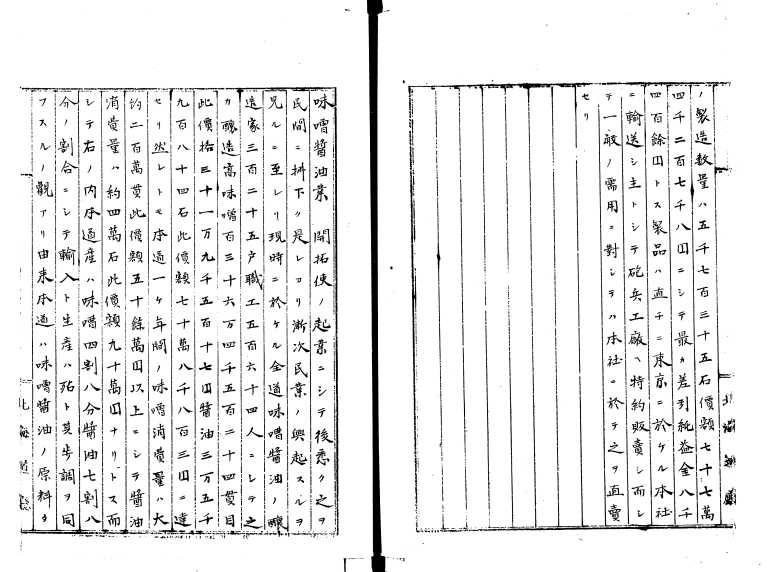 ノ製造数量ハ五千七百三十五石價額七十七萬
四千二百七千八円ニシテ最カ差引純益金八千
四百餘円トス製品ハ直チニ東京ニ於ケル本社
ニ輸送シ主トシテ砲兵工廠ヘ特約販賣シ而シ
テ一般ノ需用ニ對シテハ本社ニ於テ之ヲ直賣
セリ
北海道廳
味噌醬油業 開拓使ノ起業ニシテ後悉ク之ヲ
民間ニ拂下ク是レヨリ漸次民業ノ興起スルヲ
見ルニ至レリ現時ニ於ケル全道味噌醬油ノ釀
造家三百二十五戸職工五百六十四人ニシテ之
カ釀造高味噌百三十六万四千五百二十四貫目
此價拾三十一万九千五百十七円醬油三万五千
九百八十四石此價額七十萬八千八百三円ニ達
セリ然レトモ本道一ケ年間ノ味噌消費量ハ大
約二百萬貫此價額五十餘萬円以上ニシテ醬油
消費量ハ約四萬石此價額九十萬円ナリトス而
シテ右ノ内本道産ハ味噌四割八分醬油七割八
分ノ割合ニシテ輸入ト生産ハ殆ト其歩調ヲ同
フスルノ觀アリ由来本道ハ味噌醬油ノ原料タ
北海道廳